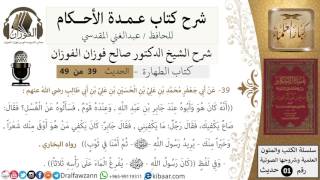 شرح كتاب عمدة الأحكام
للحافظ / عبدالغني المقدسي
شرح الشيخ الدكتور صالح فوزان الفوزان
كتاب الطهارة - الحديث 39 من 49
39- عَنْ أَبِي جَعْفَرٍ مُحَمَّدِ بْنِ عَلِيِّ بْنِ الْحُسَيْنِ بْنِ عَلِيِّ بْنِ أَبِي طَالِبٍ رضي الله عنهم :
((أَنَّهُ كَانَ هُوَ وَأَبُوهُ عِنْدَ جَابِرِ بْنِ عَبْدِ اللَّهِ ، وَعِنْدَهُ قَوْمٌ ، فَسَأَلُوهُ عَنْ الْغُسْلِ؟ فَقَالَ:
صَاعٌ يَكْفِيكَ، فَقَالَ رَجُلٌ: مَا يَكْفِينِي ، فَقَالَ جَابِرٌ: كَانَ يَكْفِي مَنْ هُوَ أَوْفَى مِنْكَ شَعَرًا ،
وَخَيْرًا مِنْكَ - يُرِيدُ رَسُولَ اللَّهِ - ثُمَّ أَمَّنَا فِي ثَوْبٍ)) رواه البخاري.
وَفِي لَفْظٍ ((كَانَ رَسُولُ اللَّهِ يُفْرِغُ الْمَاءَ عَلَى رَأْسِهِ ثَلَاثًا)).
الفوزان
سلسلة الكتب والمتون
العلمية وشروحها الصوتية
رقم 01 حديث
Dralfawzann
www.kibaar.com